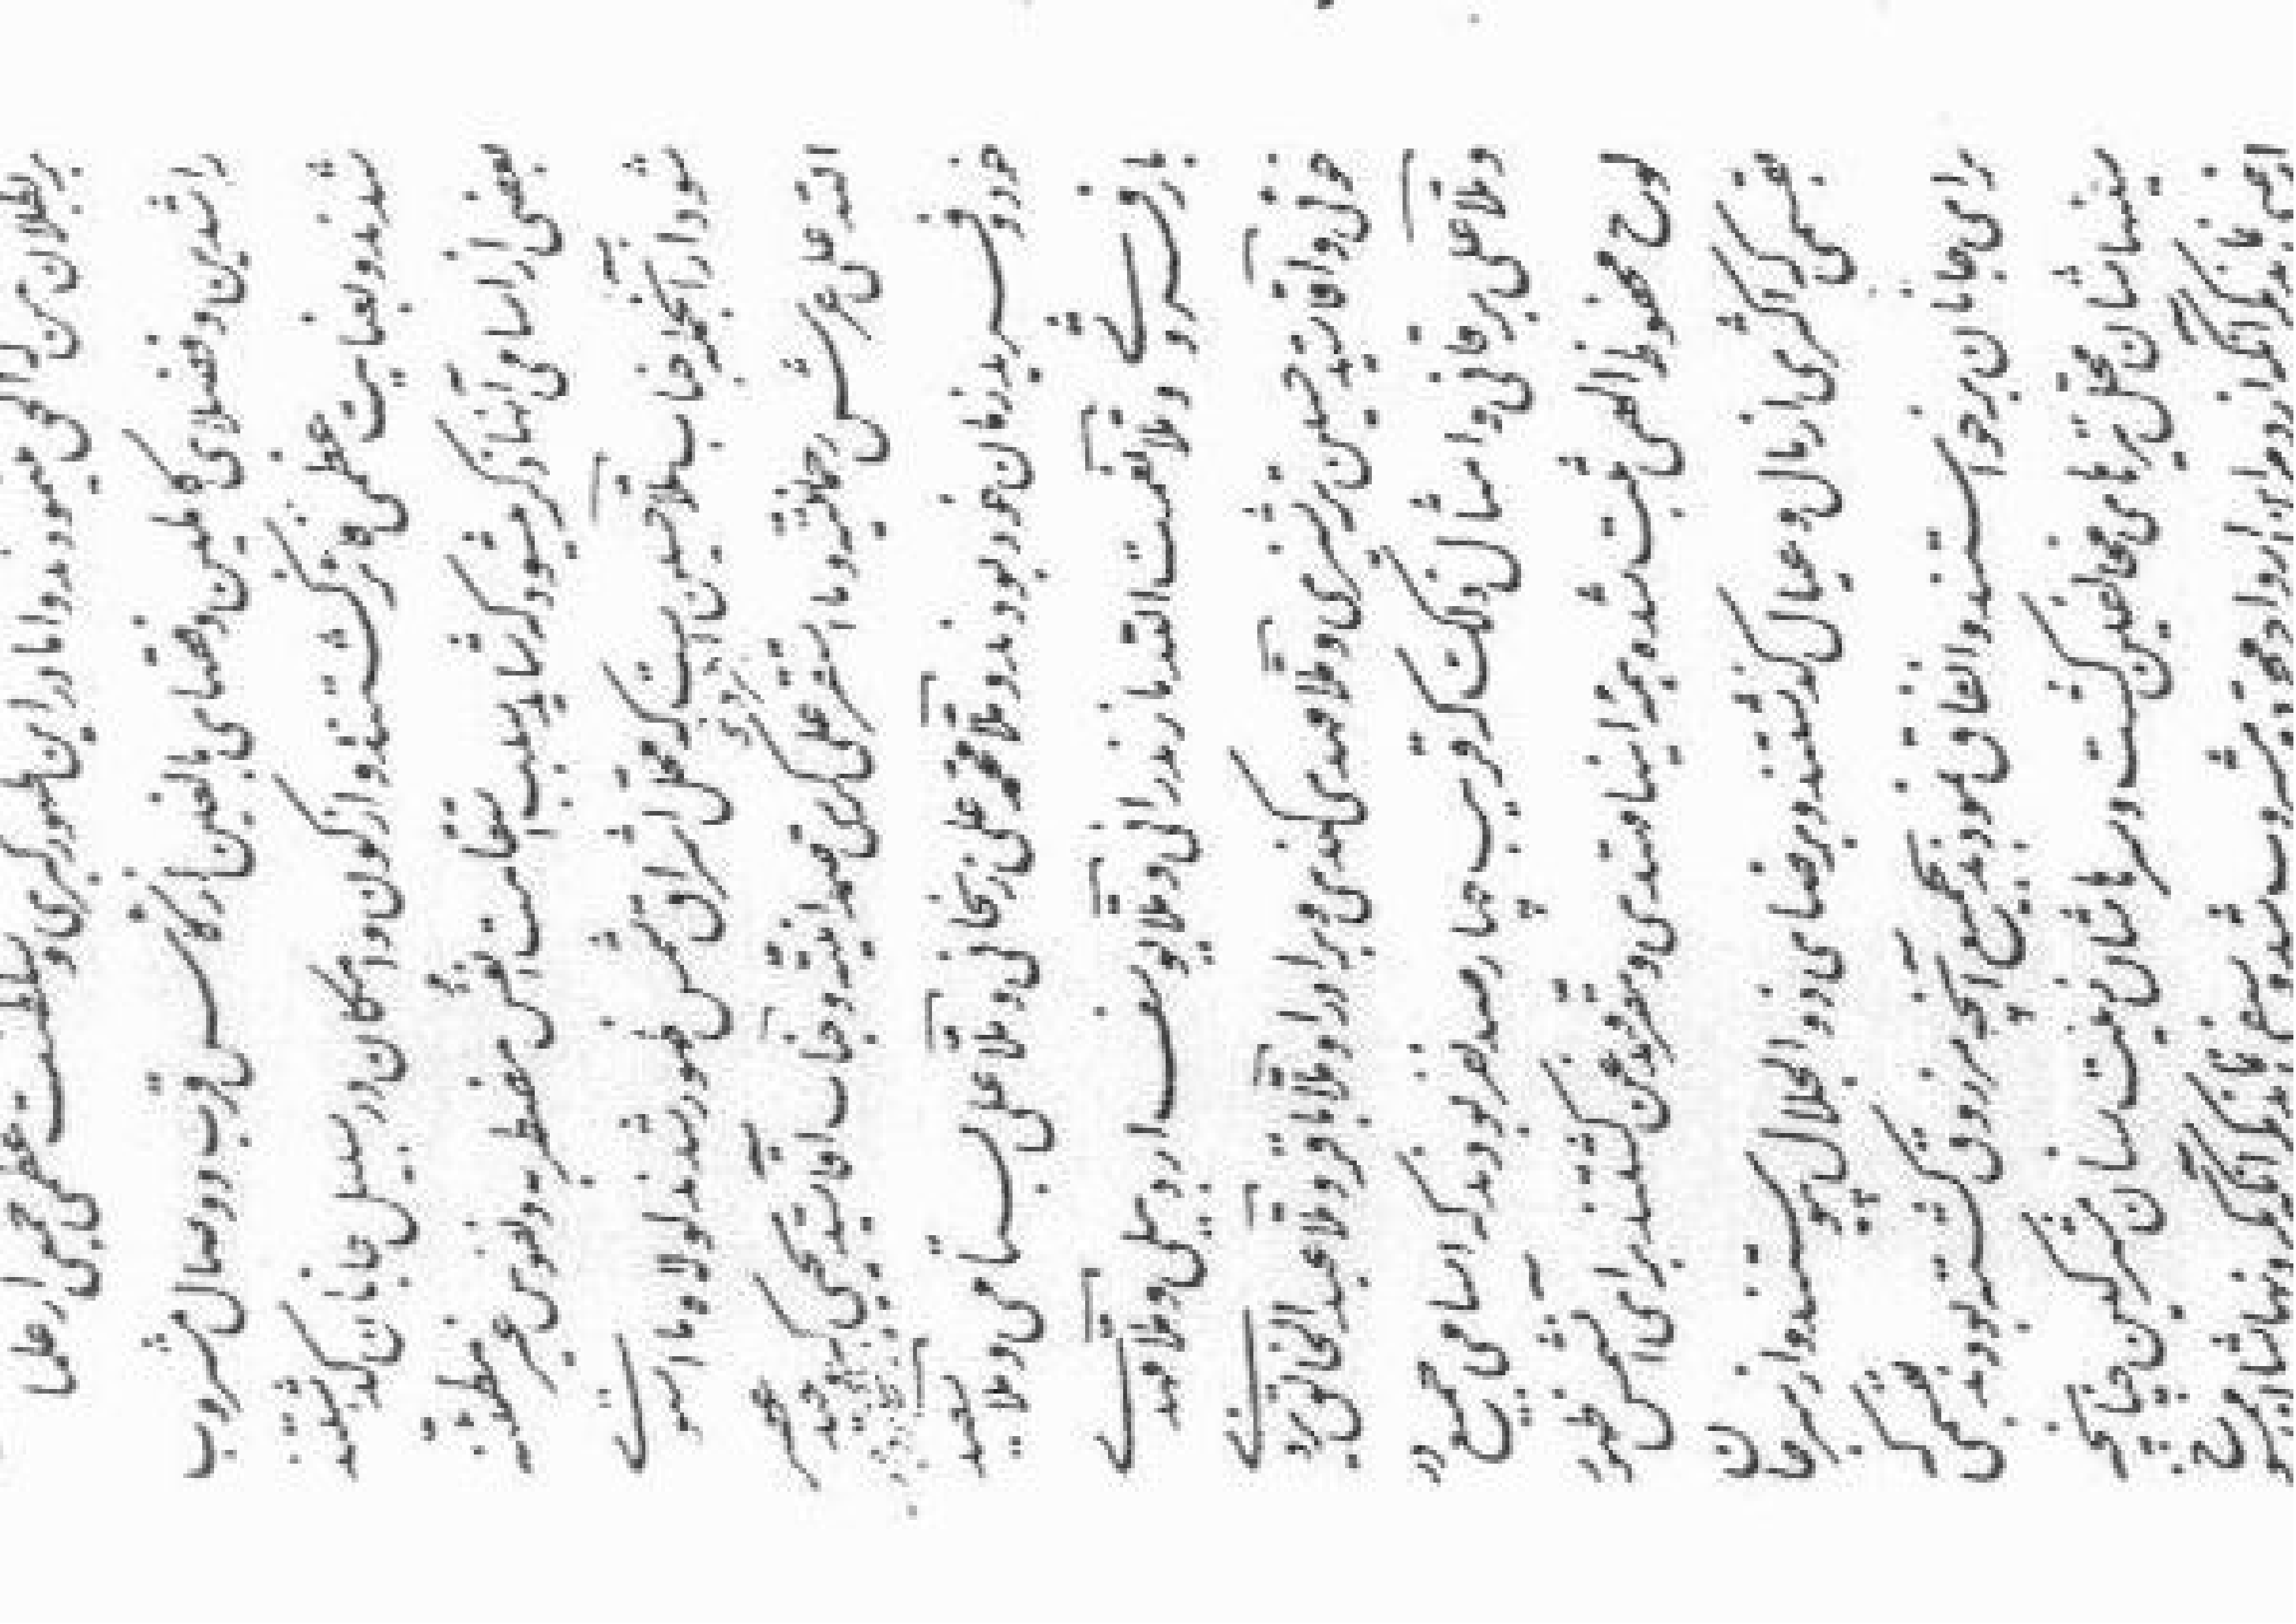 بر بطلان من دالی میبودند و اما در این ظهور کبری و سلطنت عظمی جمعی از علما
راشدین و فضلای کاملین و فقهای بالغین از کاس قرب و وصال مشروب
شدند و بعنایت عظمی فائز گشتند و از کون و امکان در سبیل جانان گذشتند
بعضی از اسامی آنها ذکر میشود که شاید سبب استقامت انفس مضطربه و نفوس غیر مطمئنه
شود از آنجمله جناب ملا حسین است که محل اشراق شمس ظهور شدند لولاه ما استوی
الله علی عرش رحمانیته و ما استقر علی کرسی صمدانیته و جناب آقا سید یحیی که وحید عصر
خود و فرید زمان خود بودند و ملا محمد علی زنجانی و ملا علی بسطامی و ملا سعید
بارفروشی و ملا نعمت الله مازندرانی و ملا یوسف اردبیلی و ملا مهدی
خوئی و آقا سید حسین ترشیزی و ملا مهدی کندی و برادر او ملا باقر و ملا عبد الخالق یزدی
و ملا علی برقانی و امثال ذلک که قریب چهارصد نفر بودند که اسامی جمیع در
لوح محفوظ الهی ثبت شده همه اینها مهتدی و مقر و مذعن گشتند برای آن شمس ظهور
بقسمی که اکثری از مال و عیال گذشتند و برضای ذو الجلال پیوستند و از سر جان
برای جانان برخواستند و انفاق نمودند بجمیع آنچه مرزوق گشته بودند بقسمی که
سینهاشان محل تیرهای مخالفین گشت و سرهاشان زینت سنان مشرکین چنانچه
ارضی نماند مگر آنکه از دم این ارواح مجرده مشروب شد و سیفی نماند مگر آنکه بگردنهاشان ممسوح